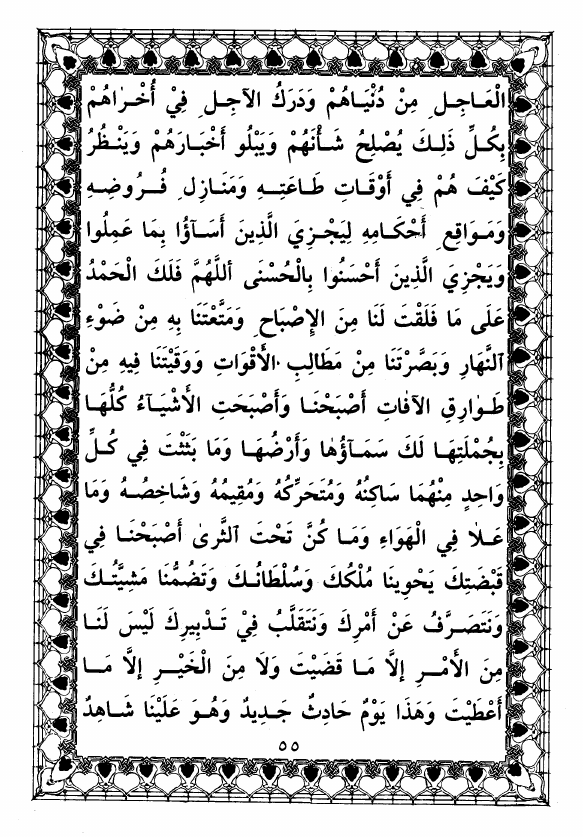 الْعَاجِلِ مِنْ دُنْيَاهُمْ وَدَرَكُ الآجِلِ فِيْ أُخْرَاهُمْ
بِكُلِّ ذَلِكَ يُصْلِحُ شَأْنَهُمْ وَيَبْلُو أَخْبَارَهُمْ وَيَنْظُرُ
كَيْفَ هُمْ فِي أَوْقَاتِ طَاعَتِهِ وَمَنَازِلِ فُرُوضِهِ
وَمَوَاقِعِ أَحْكَامِهِ لِيَجْزِيَ الَّذِينَ أَسَآؤُا بِمَا عَمِلُوا
وَيَجْزِيَ الَّذِينَ أَحْسَنُوا بِالْحُسْنَى أَللَّهُمَّ فَلَكَ الْحَمْدُ
عَلَى مَا فَلَقْتَ لَنَا مِنَ الإِصْبَاحِ وَمَتَّعْتَنَا بِهِ مِنْ ضَوْءِ
ٱلنَّهَارِ وَبَصَّرْتَنَا مِنْ مَطَالِبِ الأَقْوَاتِ وَوَقَيْتَنَا فِيهِ مِنْ
طَوٰارِقِ الآفٰاتِ أَصْبَحْنَا وَأَصْبَحَتِ الأَشْيَآءُ كُلُّهَا
بِجُمْلَتِهَا لَكَ سَمَآؤُهٰا وَأَرْضُهَا وَمَا بَثَثْتَ فِي كُلِّ
وَاحِدٍ مِنْهُمَا سَاكِنُهُ وَمُتَحَرِّكُهُ وَمُقِيمُهُ وَشَاخِصُهُ وَمَا
عَلاٰ فِي الْهَوَاءِ وَمَا كُنَّ تَحْتَ ٱلثَّرىٰ أَصْبَحْنَا فِي
قَبْضَتِكَ يَحْوِينَا مُلْكُكَ وَسُلْطَانُكَ وَتَضُمُّنَا مَشِيَّتُكَ
وَنَتَصَرَّفُ عَنْ أَمْرِكَ وَنَتَقَلَّبُ فِيْ تَدْبِيرِكَ لَيْسَ لَنَا
مِنَ الأَمْرِ إلاَّ مَا قَضَيْتَ وَلاَ مِنَ الْخَيْرِ إلاَّ مَا
أَعْطَيْتَ وَهَذَا يَوْمٌ حَادِثٌ جَدِيدٌ وَهُوَ عَلَيْنَا شَاهِدٌ
٥٥